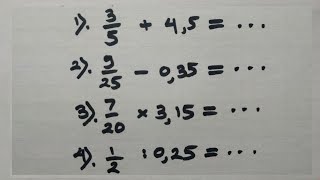 1). 3/5 + 4,5 = ...
2). 9/25 - 0,35 = ...
3). 7/20 × 3,15 = ...
4). 1/2 : 0,25 = ...